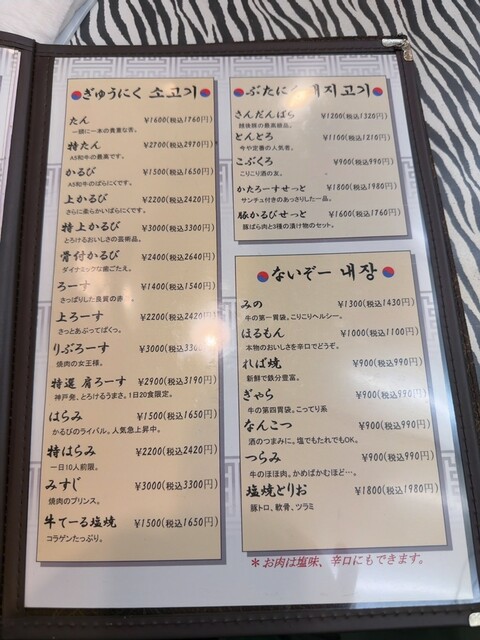 ぎゅうにく 소고기
たん ¥1600(税込1760円)
一頭に一本の貴重な舌。
特たん ¥2700(税込2970円)
A5和牛の最高です。
かるび ¥1500(税込1650円)
A5和牛のばらにくです。
上かるび ¥2200(税込2420円)
さらに柔らかいばらにくです。
特上かるび ¥3000(税込3300円)
とろけるおいしさの芸術品。
骨付かるび ¥2400(税込2640円)
ダイナミックな歯ごたえ。
ろーす ¥1400(税込1540円)
さっぱりした良質の赤
上ろーす ¥2200(税込2420円)
さっとあぶってぱくっ。
りぶろーす ¥3000(税込330
焼肉の女王様。
特選 肩ろーす ¥2900(税込3190円)
神戸発、とろけるうまさ。1日20食限定。
はらみ ¥1500(税込1650円)
かるびのライバル。人気急上昇中。
特はらみ ¥2200(税込2420円)
一日10人前限。
みすじ ¥3000(税込3300円)
焼肉のプリンス。
牛てーる塩焼 ¥1500(税込1650円)
コラゲンたっぷり。
ぶたにく 돼지고기
さんだんばら ¥1200(税込1320円)
豚後豚の最高級品。
とんとろ ¥1100(税込1210円)
今や定番の人気者。
こぶくろ ¥900(税込990円)
こりこり酒の友。
かたろーすせっと ¥1800(税込1980円)
サンチュ付きのあっさりした一品。
豚かるびせっと ¥1600(税込1760円)
豚ばら肉と3種の漬け物のセット。
ないぞー 내장
みの ¥1300(税込1430円)
牛の第一胃袋。こりこりヘルシー。
ほるもん ¥1000(税込1100円)
本物のおいしさを辛口でどうぞ。
ればー焼 ¥900(税込990円)
新鮮で鉄分豊富。
ぎゃら ¥900(税込990円)
牛の第四胃袋。こってり系
なんこつ ¥900(税込990円)
酒のつまみに。塩もたれでもOK。
つらみ ¥900(税込990円)
牛のほほ肉。かめばかむほど…。
塩焼とりお ¥1800(税込1980円)
豚トロ、軟骨、ツラミ
＊お肉は塩味、辛口にもできます。